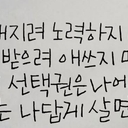 해지려 노력하지
받으려 애쓰지 마
선택권은 나에
는 나답게 살면